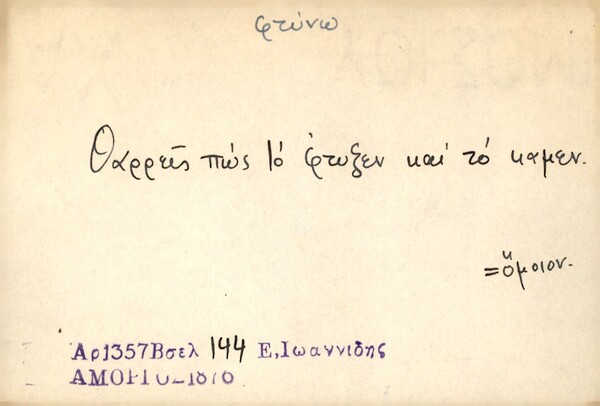 φτύνω
Θαρρεῖς πώς τό ἔφτυξεν καί τό καμεν.
=ὅμοιον.
Αρ1357Βσελ 144 Ε,Ιωαννιδης
ΑΜΟΡΓΟΣ1876